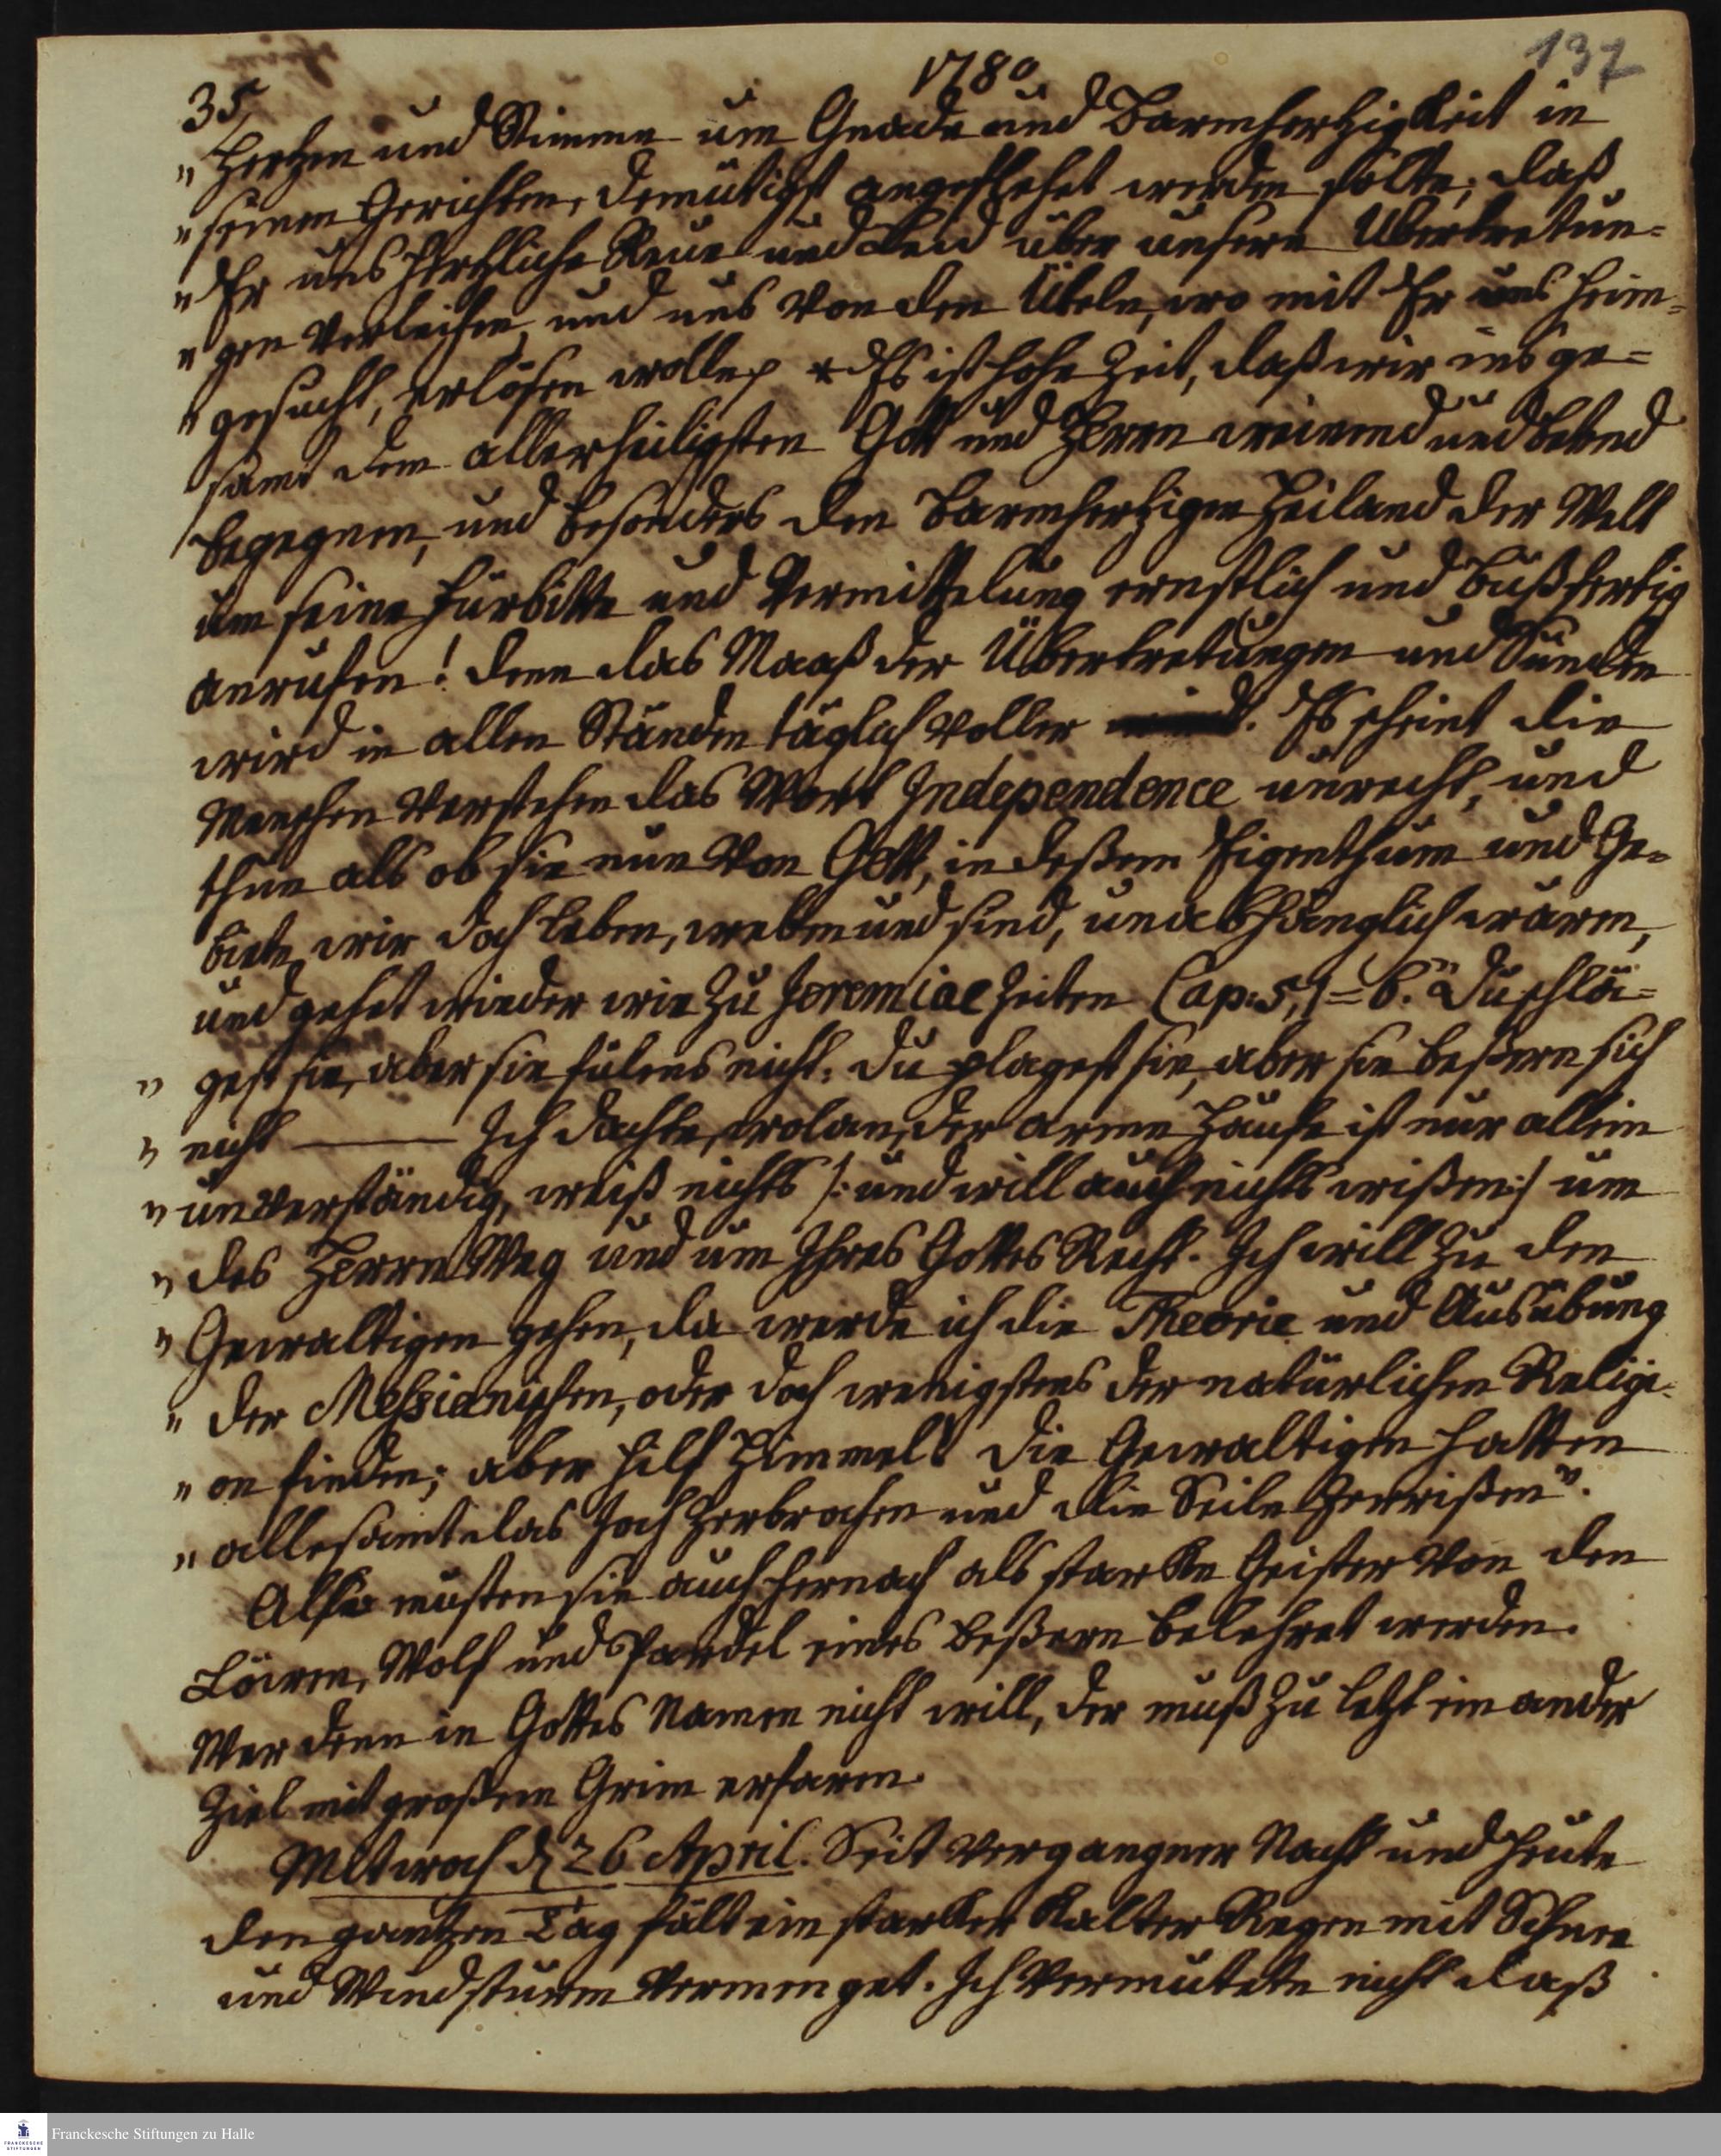 137
1780
35
„ Hertzen und Stimme um Gnade und Barmhertzigkeit in
„ seinen Gerichten, demütigst angeflehet werden solte; daß
„ Er uns hertzliche Reue und Leid über unsere Übertretun=
„ gen verleihen, und uns von den Übeln, wo mit Er uns heim=
„ gesucht, erlösen wolle * Es ist hohe Zeit, daß wir ins ge=
samt dem allerheiligsten Gott und Herrn weinend und betend
begegnen, und besonders den barmhertzigen Heiland der Welt
um seine Fürbitte und Vermittelung ernstlich und bußfertig
anrufen! denn das Maaß der Übertretungen und Sünden
wird in allen Ständen täglich voller. Es scheint die
Menschen verstehen das Wort Independence unrecht, und
thun als ob sie nun von Gott, in deßen Eigenthum und Ge=
biete wir doch leben, weben und sind, unabhänglich wären,
und gehet wieder wie zu Jeremiae Zeiten Cap: 5, 1=6. „Du schlä=
„ gest sie, aber sie fülens nicht. du plagest sie, aber sie beßern sich
„ nicht ——— Ich dachte, wolan, der arme Haufe ist nur allein
„ unverständig, weiß nichts /: und will auch nichts wißen :/ um
„ des Herrn Weg und um Ihres Gottes Recht. Ich will zu den
„ Gewaltigen gehen, da werde ich die Theorie und Ausübung
„ der Meßianischen, oder doch wenigstens der natürlichen Religi=
„ on finden; aber hilf Himmel! die Gewaltigen hatten
„ allesamt das Joch zerbrochen und die Seile zerrißen“.
Also musten sie auch hernach als starke Geister von den
Löwen, Wolf und Pardel eines beßern belehret werden.
Wer denn in Gottes Namen nicht will, der muß zu letzt ein ander
Ziel mit großem Grim erfaren.
Mitwoch d 26 April. Seit vergangner Nacht und heute
den gantzen Tag fält ein starker kalter Regen mit Schnee
und Windsturm vermenget. Ich vermutete nicht daß
FRANCKESCHE STIFTUNGEN
Franckesche Stiftungen zu Halle